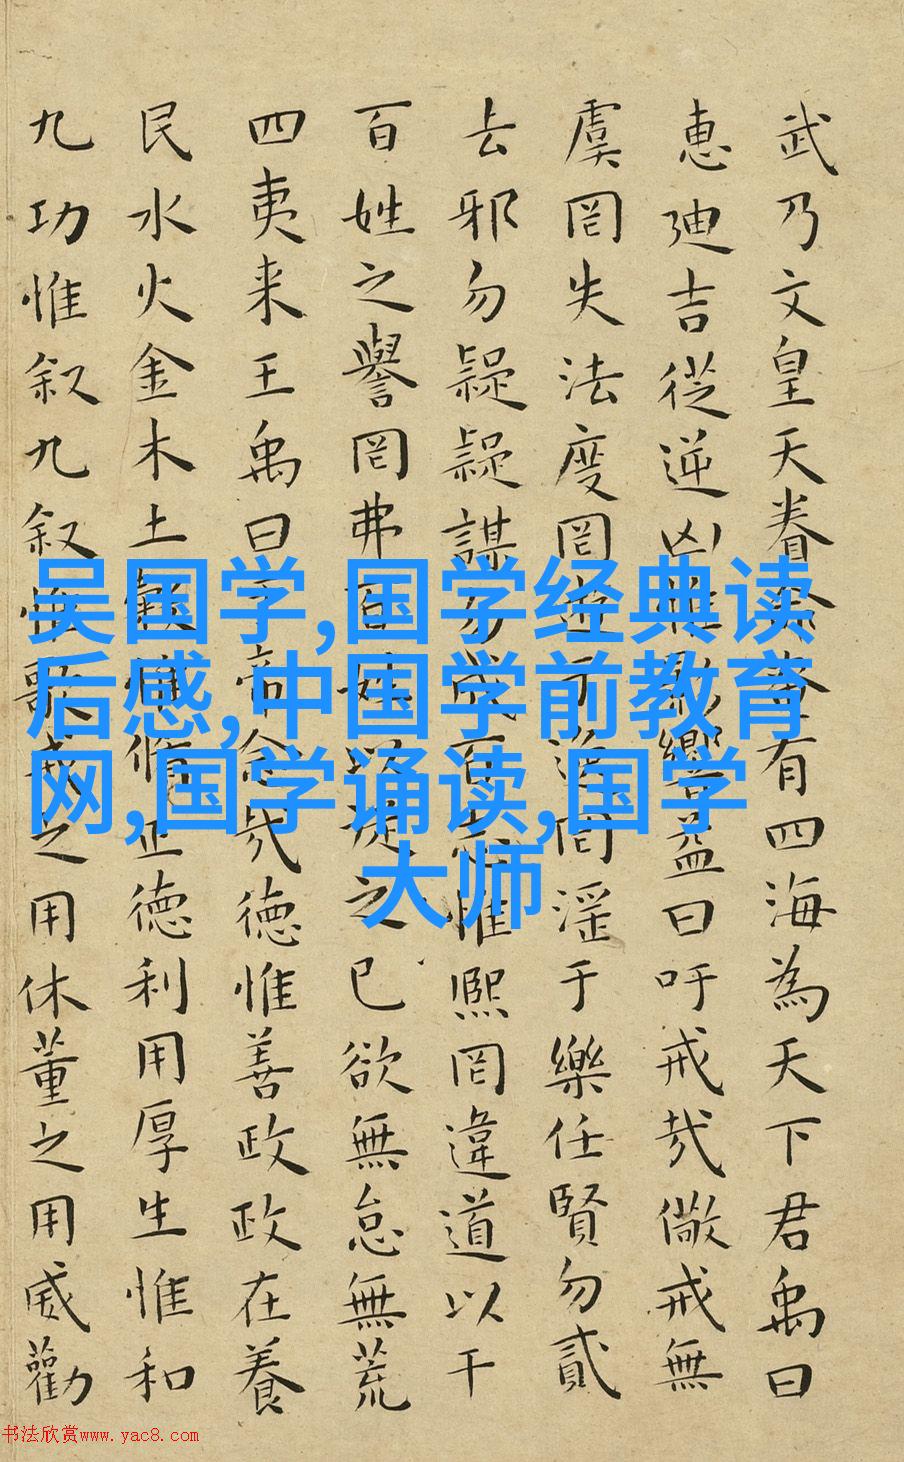 武乃文皇天眷命奄有四海為天下君禹曰
惠廸吉從逆凶惟影響益曰吁戒哉儆戒無
虞罔失法度罔遊于逸罔淫于樂任賢勿貳
去邪勿疑疑謀勿成百志惟熙罔違道以干
百姓之譽罔弗百姓以從之已欲無怠無荒
四夷来王禹曰於帝念哉德惟善政政在養
民水火金木土穀惟脩正德利用厚生惟和
九功惟叙九叙惟歌戒之用休董之用威勸
吴国学,国学经典读
后感,中国学前教育
网,国学诵读,国学
大师
书法欣赏www.yac8.com